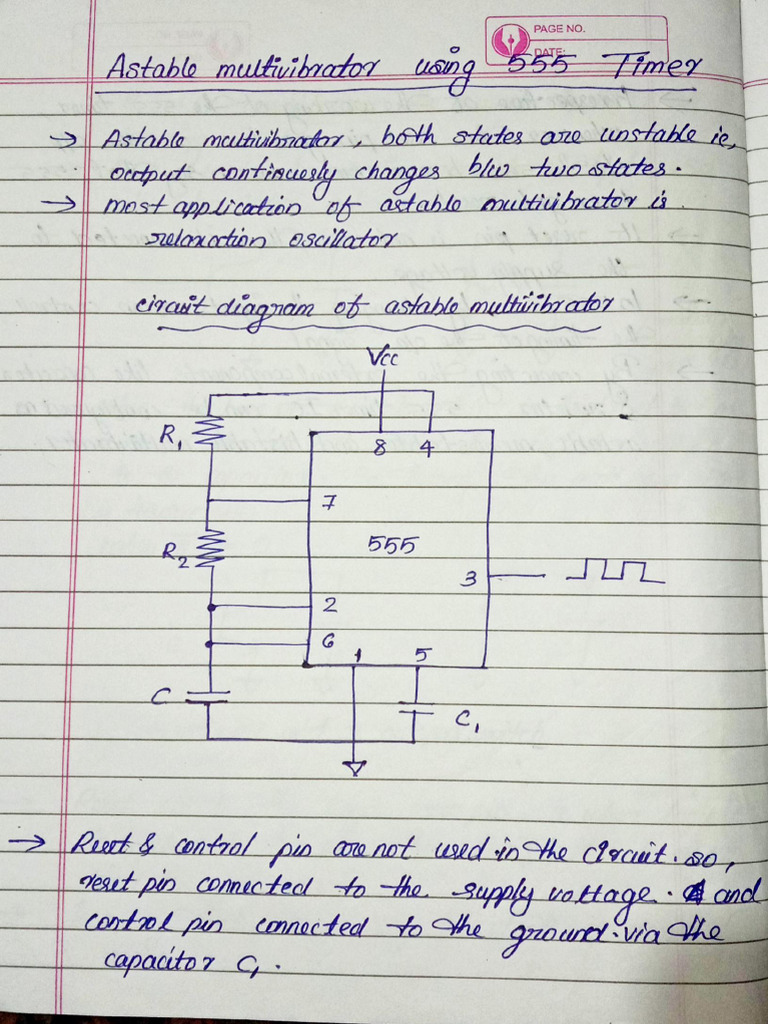 PAGE NO.
DATE:
Astable multivibrator using 555 Timer
→ Astable multivibrator, both states are unstable ie,
output continuously changes b/w two states.
→ most application of astable multivibrator is
relaxation oscillator
circuit diagram of astable multivibrator
Vcc
R1
8 4
7
R2
555
3
2
6
1 5
C
C1
→ Reset & control pin are not used in the circuit. so,
reset pin connected to the supply voltage. and
control pin connected to the ground via the
capacitor C1.